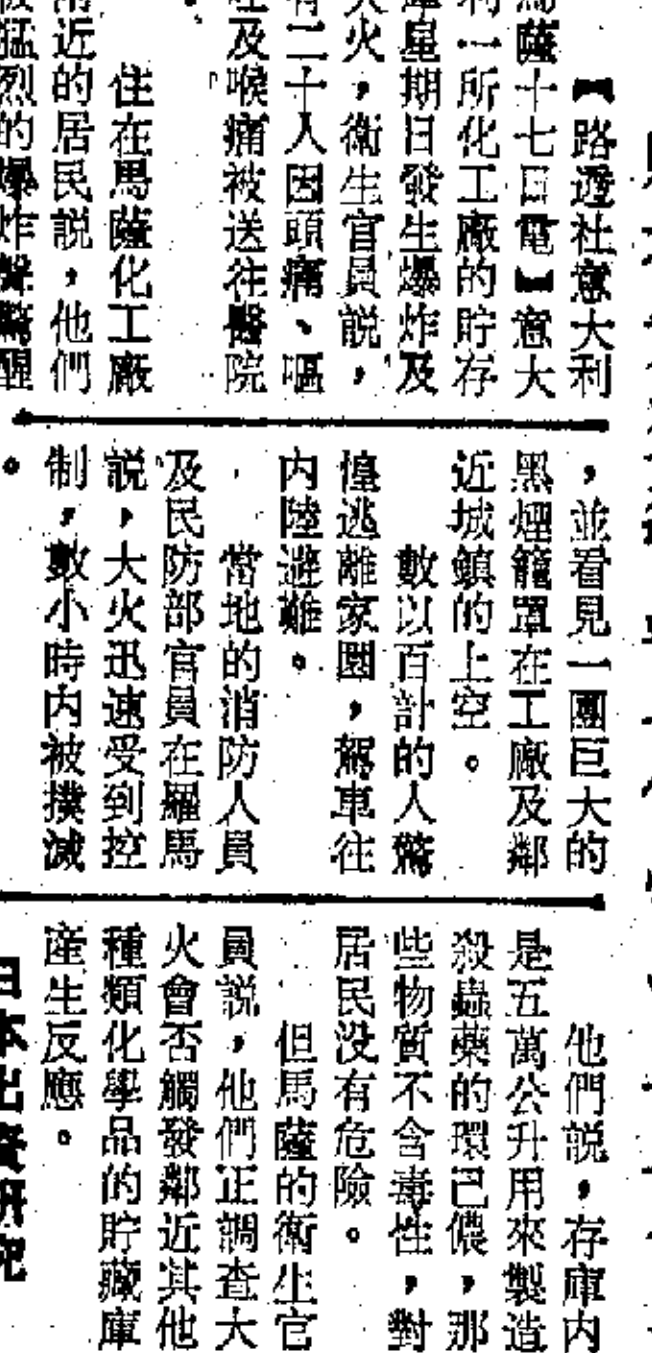 【路透社意大利
馬薩十七日電】意大
利一所化工廠的貯存
庫星期日發生爆炸及
大火，衛生官員説，
有二十人因頭痛、嘔
吐及喉痛被送往醫院
。
住在馬薩化工廠
附近的居民説，他們
被猛烈的爆炸聲驚醒
，並看見一團巨大的
黑煙籠罩在工廠及鄰
近城鎮的上空。
數以百計的人驚
惶逃離家園，駕車往
内陸避難。
當地的消防人員
及民防部官員在羅馬
説，大火迅速受到控
制，數小時内被撲滅
。
他們説，存庫内
是五萬公升用來製造
殺蟲藥的環已儂，那
些物質不含毒性，對
居民没有危險。
但馬薩的衛生官
員説，他們正調查大
火會否觸發鄰近其他
種類化學品的貯藏庫
産生反應。
日本出資研究